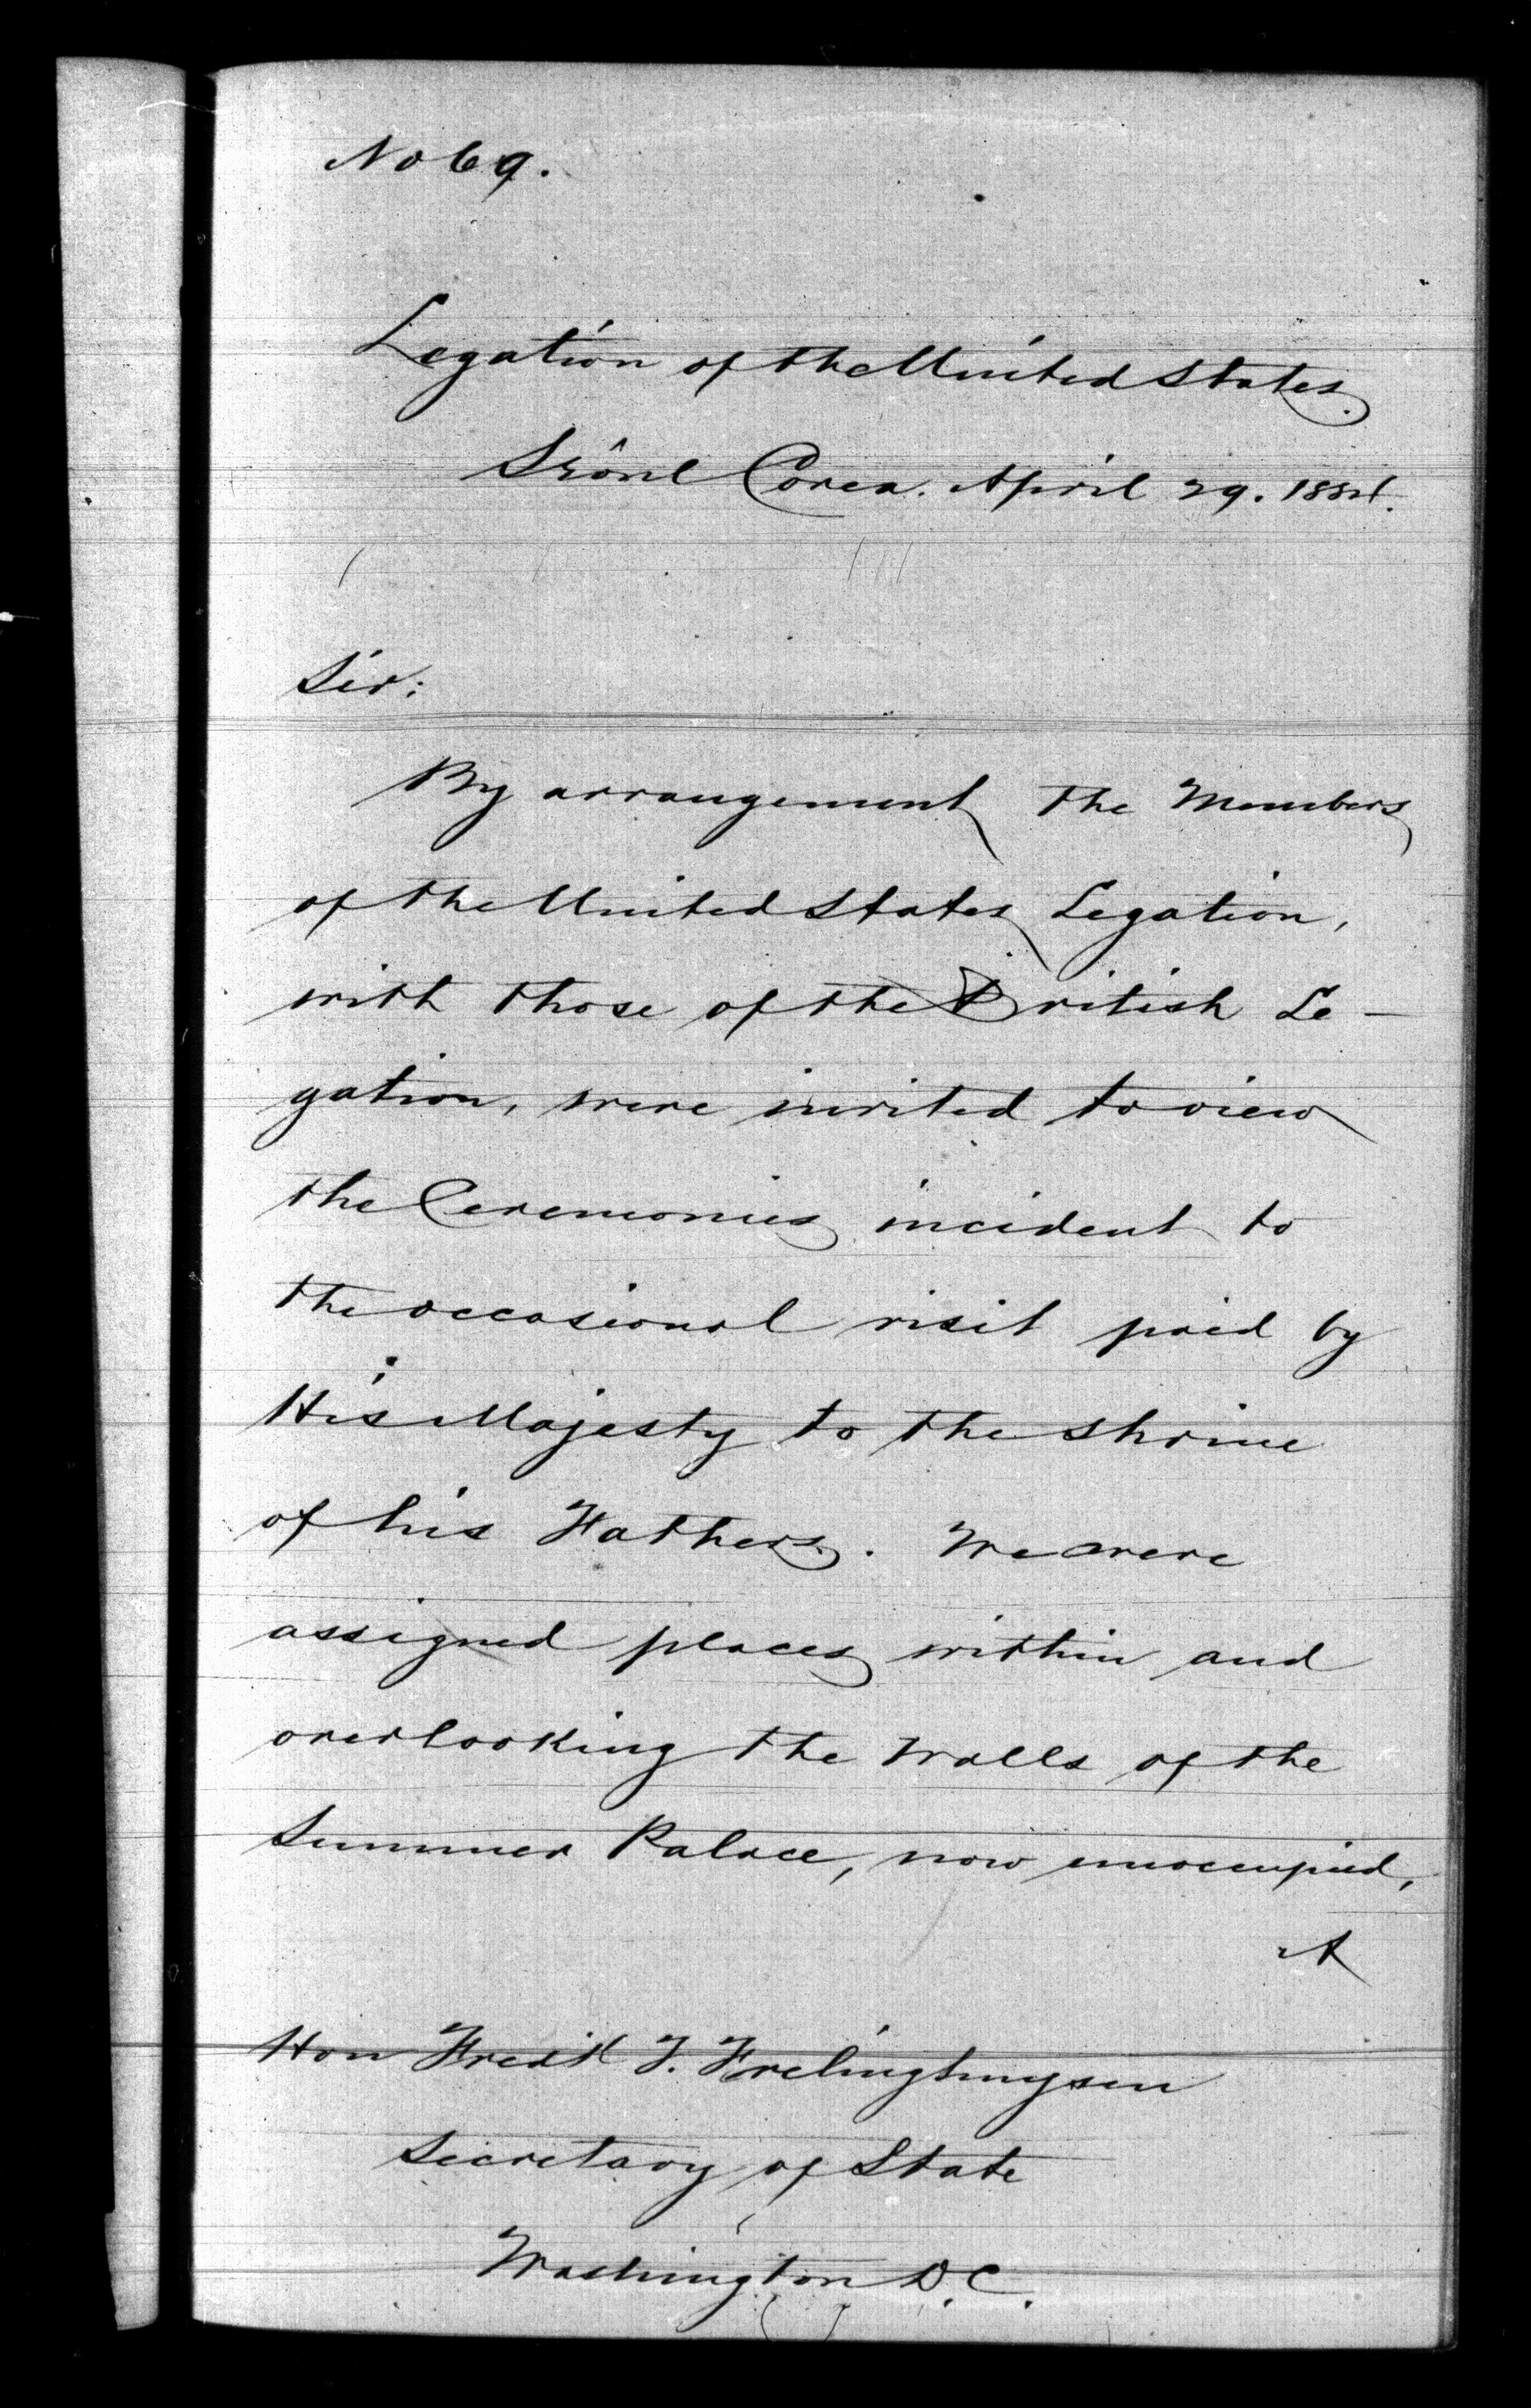 No 69.
Legation of the United States.
Sëoul Corea. April 29. 1884.
Sir:
By arrangement the Members
of the United States Legation,
with those of the British Le-
gation, were invited to view
the Ceremonies incident to
the occasional visit paid by
His Majesty to the shrine
of his Fathers. We were
assigned places within and
overlooking the walls of the
Summer Palace, now unoccupied,
A
Hon Fredk T. Frelinghuysen
Secretary of State
Washington D.C.